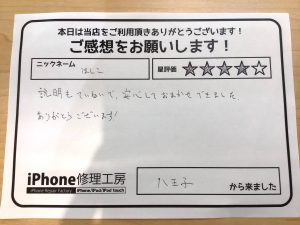 本日は当店をご利用頂きありがとうございます!
ご感想をお願いします!
ニックネーム
はしこ
星評価
★★★★★
説明もていねいで、安心しておまかせできました
ありがとうございます!
iPhone修理工房
iPhone Repair Factory
iPhone/iPad/iPod touch
八王子
から来ました